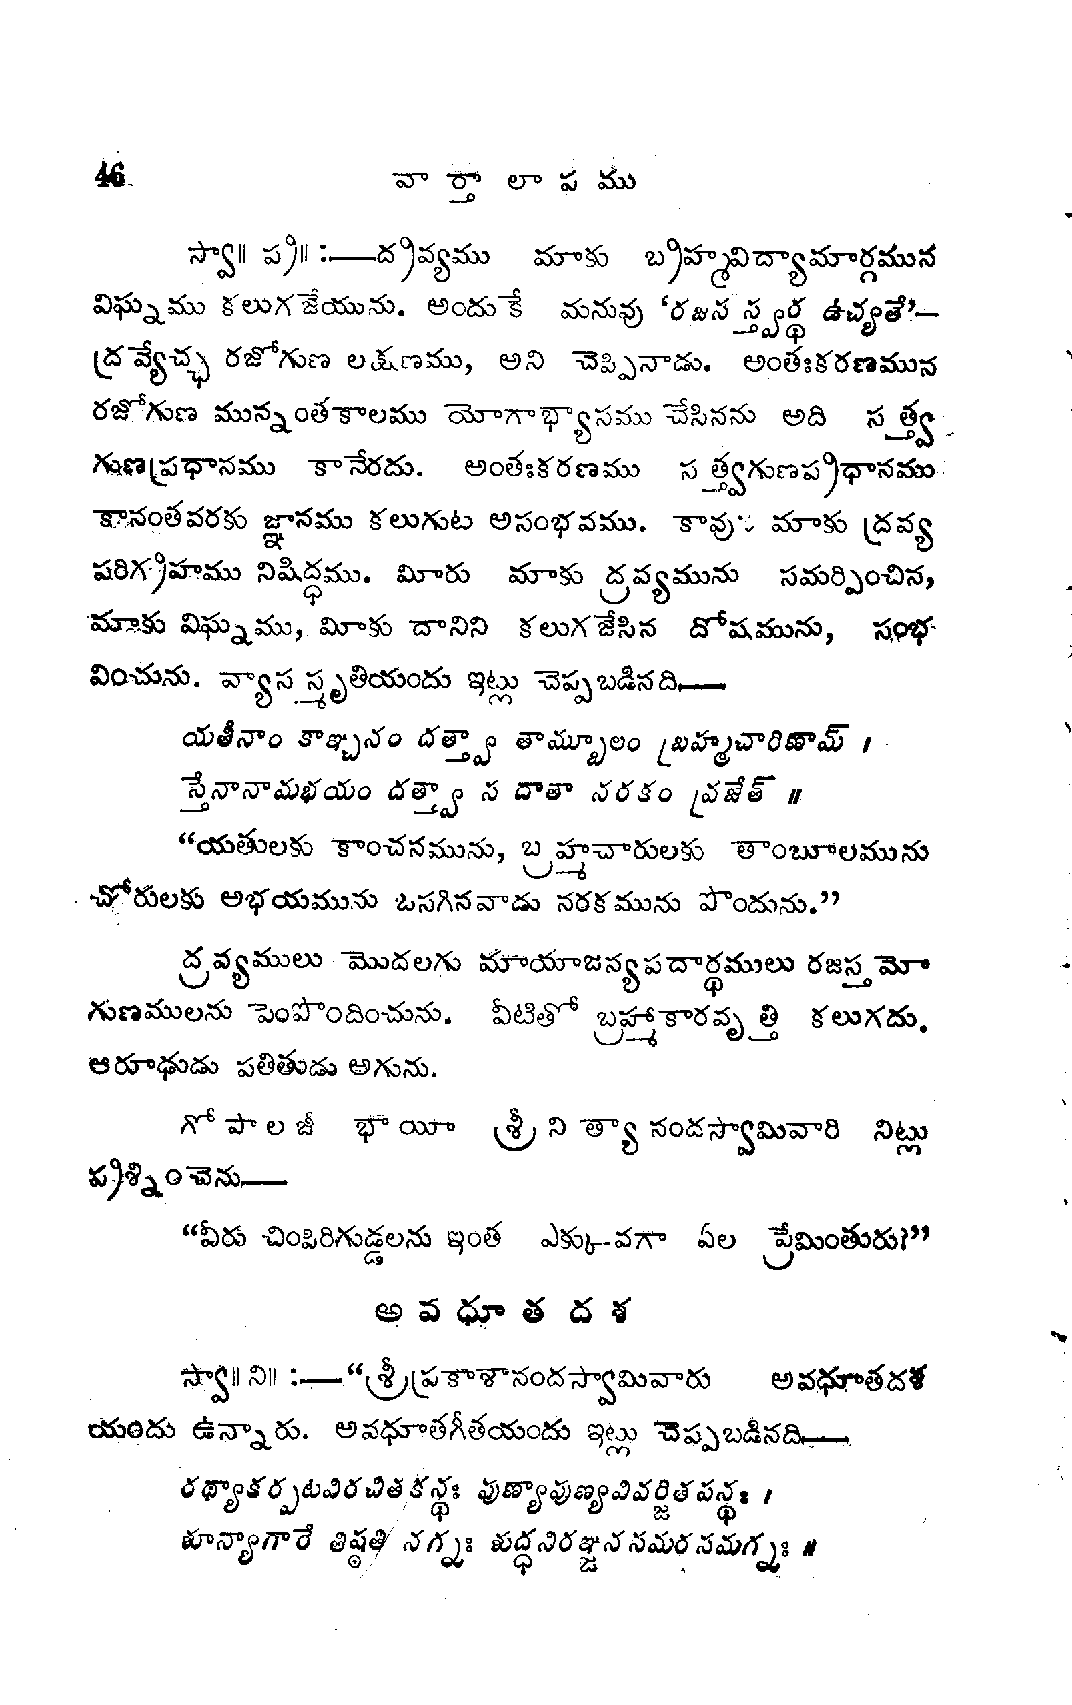 46 వార్తాలాపము
స్వా॥ ప్ర॥ :—ద్రవ్యము మాకు బ్రహ్మవిద్యామార్గమున
విఘ్నము కలుగజేయును. అందుకే మనువు ‘రజన స్త్వర్థ ఉచ్యతే’—
ద్రవ్యేచ్ఛ రజోగుణ లక్షణము, అని చెప్పినాడు. అంతఃకరణమున
రజోగుణ మున్నంతకాలము యోగాభ్యాసము చేసినను అది సత్త్వ
గుణప్రధానము కానేరదు. అంతఃకరణము సత్త్వగుణప్రధానము
కానంతవరకు జ్ఞానము కలుగుట అసంభవము. మాకు ద్రవ్య
పరిగ్రహము నిషిద్ధము. మీరు మాకు ద్రవ్యమును సమర్పించిన,
మాకు విఘ్నము, మీకు దానిని కలుగజేసిన దోషమును, సంభ-
వించును. వ్యాస స్మృతియందు ఇట్లు చెప్పబడినది——
యతీనాం కాఞ్చనం దత్త్వా తామ్బూలం బ్రహ్మచారిణామ్ ।
స్తేనానామభయం దత్త్వా స దాతా నరకం వ్రజేత్ ॥
“యతులకు కాంచనమును, బ్రహ్మచారులకు తాంబూలమును
చోరులకు అభయమును ఒసగినవాడు నరకమును పొందును.”
ద్రవ్యములు మొదలగు మాయాజన్యపదార్థములు రజస్తమో
గుణములను పెంపొందించును. వీటితో బ్రహ్మాకారవృత్తి కలుగదు.
ఆరూఢుడు పతితుడు అగును.
గోపాలజీ భాయీ శ్రీనిత్యానందస్వామివారి నిట్లు
ప్రశ్నించెను——
“వీరు చింపిరిగుడ్డలను ఇంత ఎక్కువగా ఏల ప్రేమింతురు?”
అవధూతదశ
స్వా॥ ని॥ :—“శ్రీప్రకాశానందస్వామివారు అవధూతదశ
యందు ఉన్నారు. అవధూతగీతయందు ఇట్లు చెప్పబడినది——
రథ్యాకర్పటవిరచితకన్థః పుణ్యాపుణ్యవివర్జితపన్థః ।
శూన్యాగారే తిష్ఠతి నగ్నః శుద్ధనిరఞ్జనసమరసమగ్నః ॥